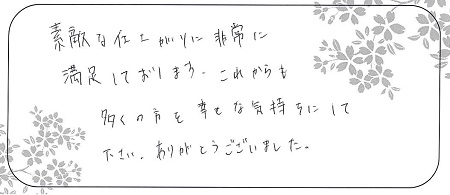 素敵な仕上がりに非常に
満足しております。これからも
多くの方を幸せな気持ちにして
下さい。ありがとうございました。